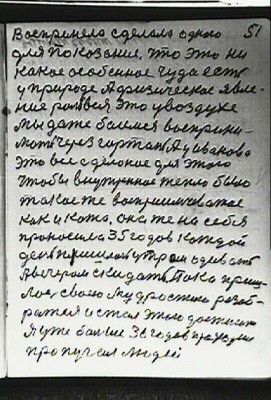 51
Восприняло сделали одного
для показание, что это ни
какое особенное чудо есть
у природе А физическое явле-
ние раться это у воздухе
мы даже боимся восприни-
мать через гортань А у Иванова
это все сделоное для этого
чтобы внутренное тело было
такое же воспринимаемое
как и кожа, она же на себя
проносила 35 годов каждой
день пришлось утром одевать
А вечером скидать. Пока приш-
лось свою мудростию разоб-
раться и стал этого достигать
А уже больше 36 годов
пропускал людей